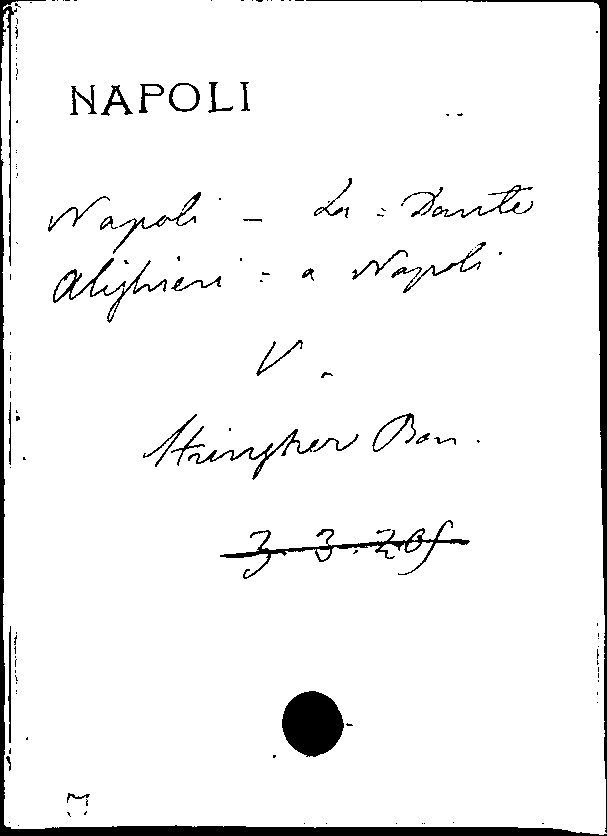 NAPOLI
Napoli - La = Dante
Alighieri = a Napoli
V.
Stringher Bon.
3. 3. 20